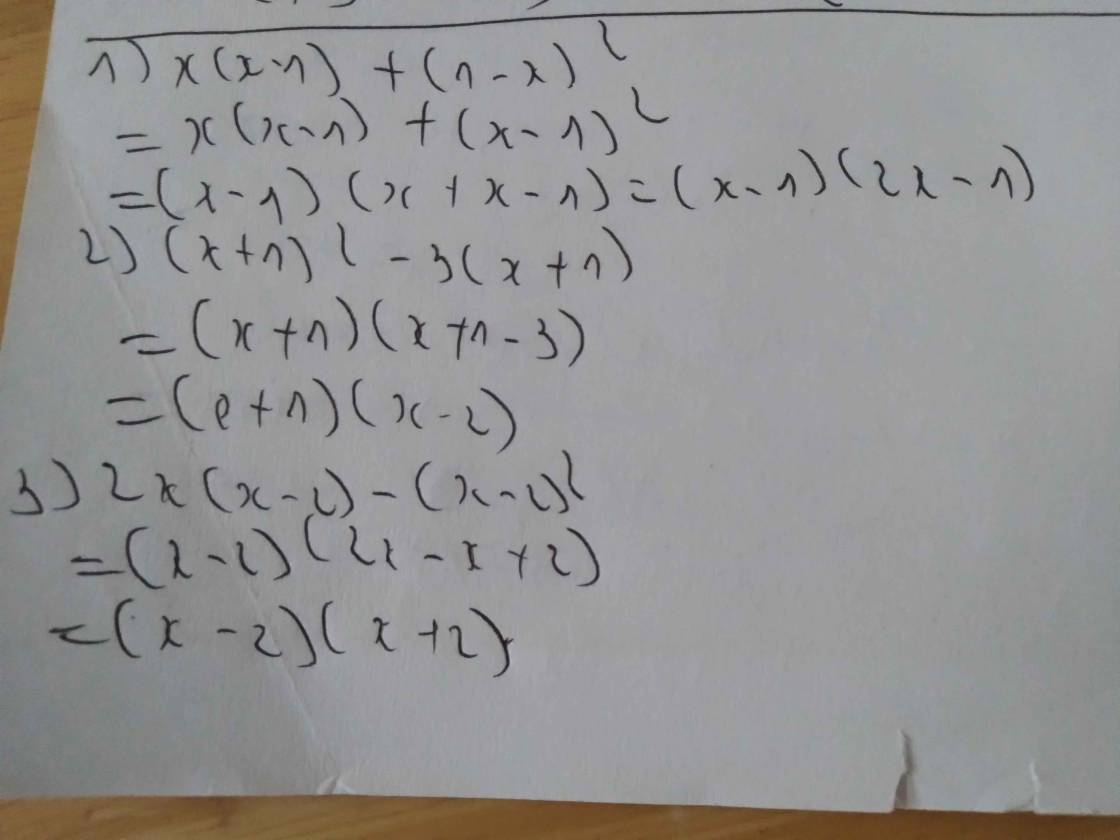 1) x(x-1) + (1-x)²
= x(x-1) + (x-1)²
=(x-1) (x+x-1)=(x-1)(2x-1)
2) (x+1)² -3(x+1)
=(x+1)(x+1-3)
=(e+1)(x-2)
3) 2x(x-2)-(x-2)²
=(x-2)(2x-x+2)
=(x-2)(x+2)